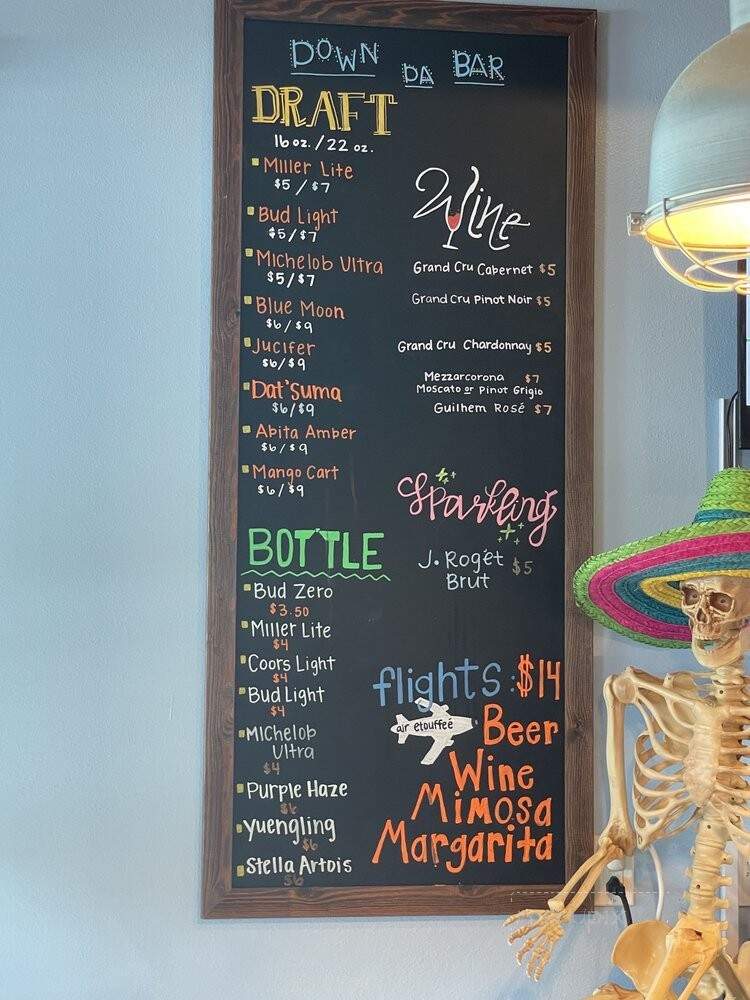 DOWN DA BAR
DRAFT
16 oz. / 22 oz.
Miller Lite
$5 / $7
Bud Light
$5/$7
Michelob Ultra
$5/$7
Blue Moon
$6/$9
Jucifer
$6/$9
Dat'suma
$6/$9
Abita Amber
$6/$9
Mango Cart
$6/$9
BOTTLE
Bud Zero
$3.50
Miller Lite
$4
Coors Light
$4
Bud Light
$4
Michelob
Ultra
$4
Purple Haze
$6
Yuengling
$6
Stella Artois
$6
Wine
Grand Cru Cabernet $5
Grand Cru Pinot Noir $5
Grand Cru Chardonnay $5
Mezzarcorona $7
Moscato or Pinot Grigio
Guilhem Rosé $7
Sparkling
J. Rogét $5
Brut
flights: $14
air etouffeé
Beer
Wine
Mimosa
Margarita